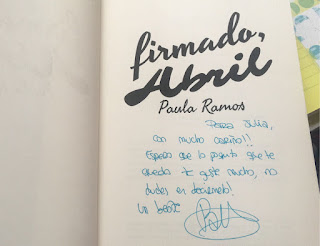 firmado,
Abril
Paula Ramos
Para Julia,
con mucho cariño!!
Espero que lo que te
queda te guste mucho, no
dudes en decírmelo!
Un beso